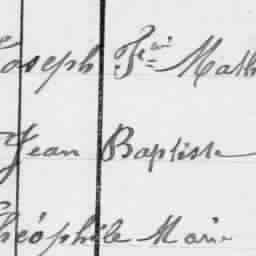 Joseph Fçois Math
Jean Baptiste
Théophile Marie